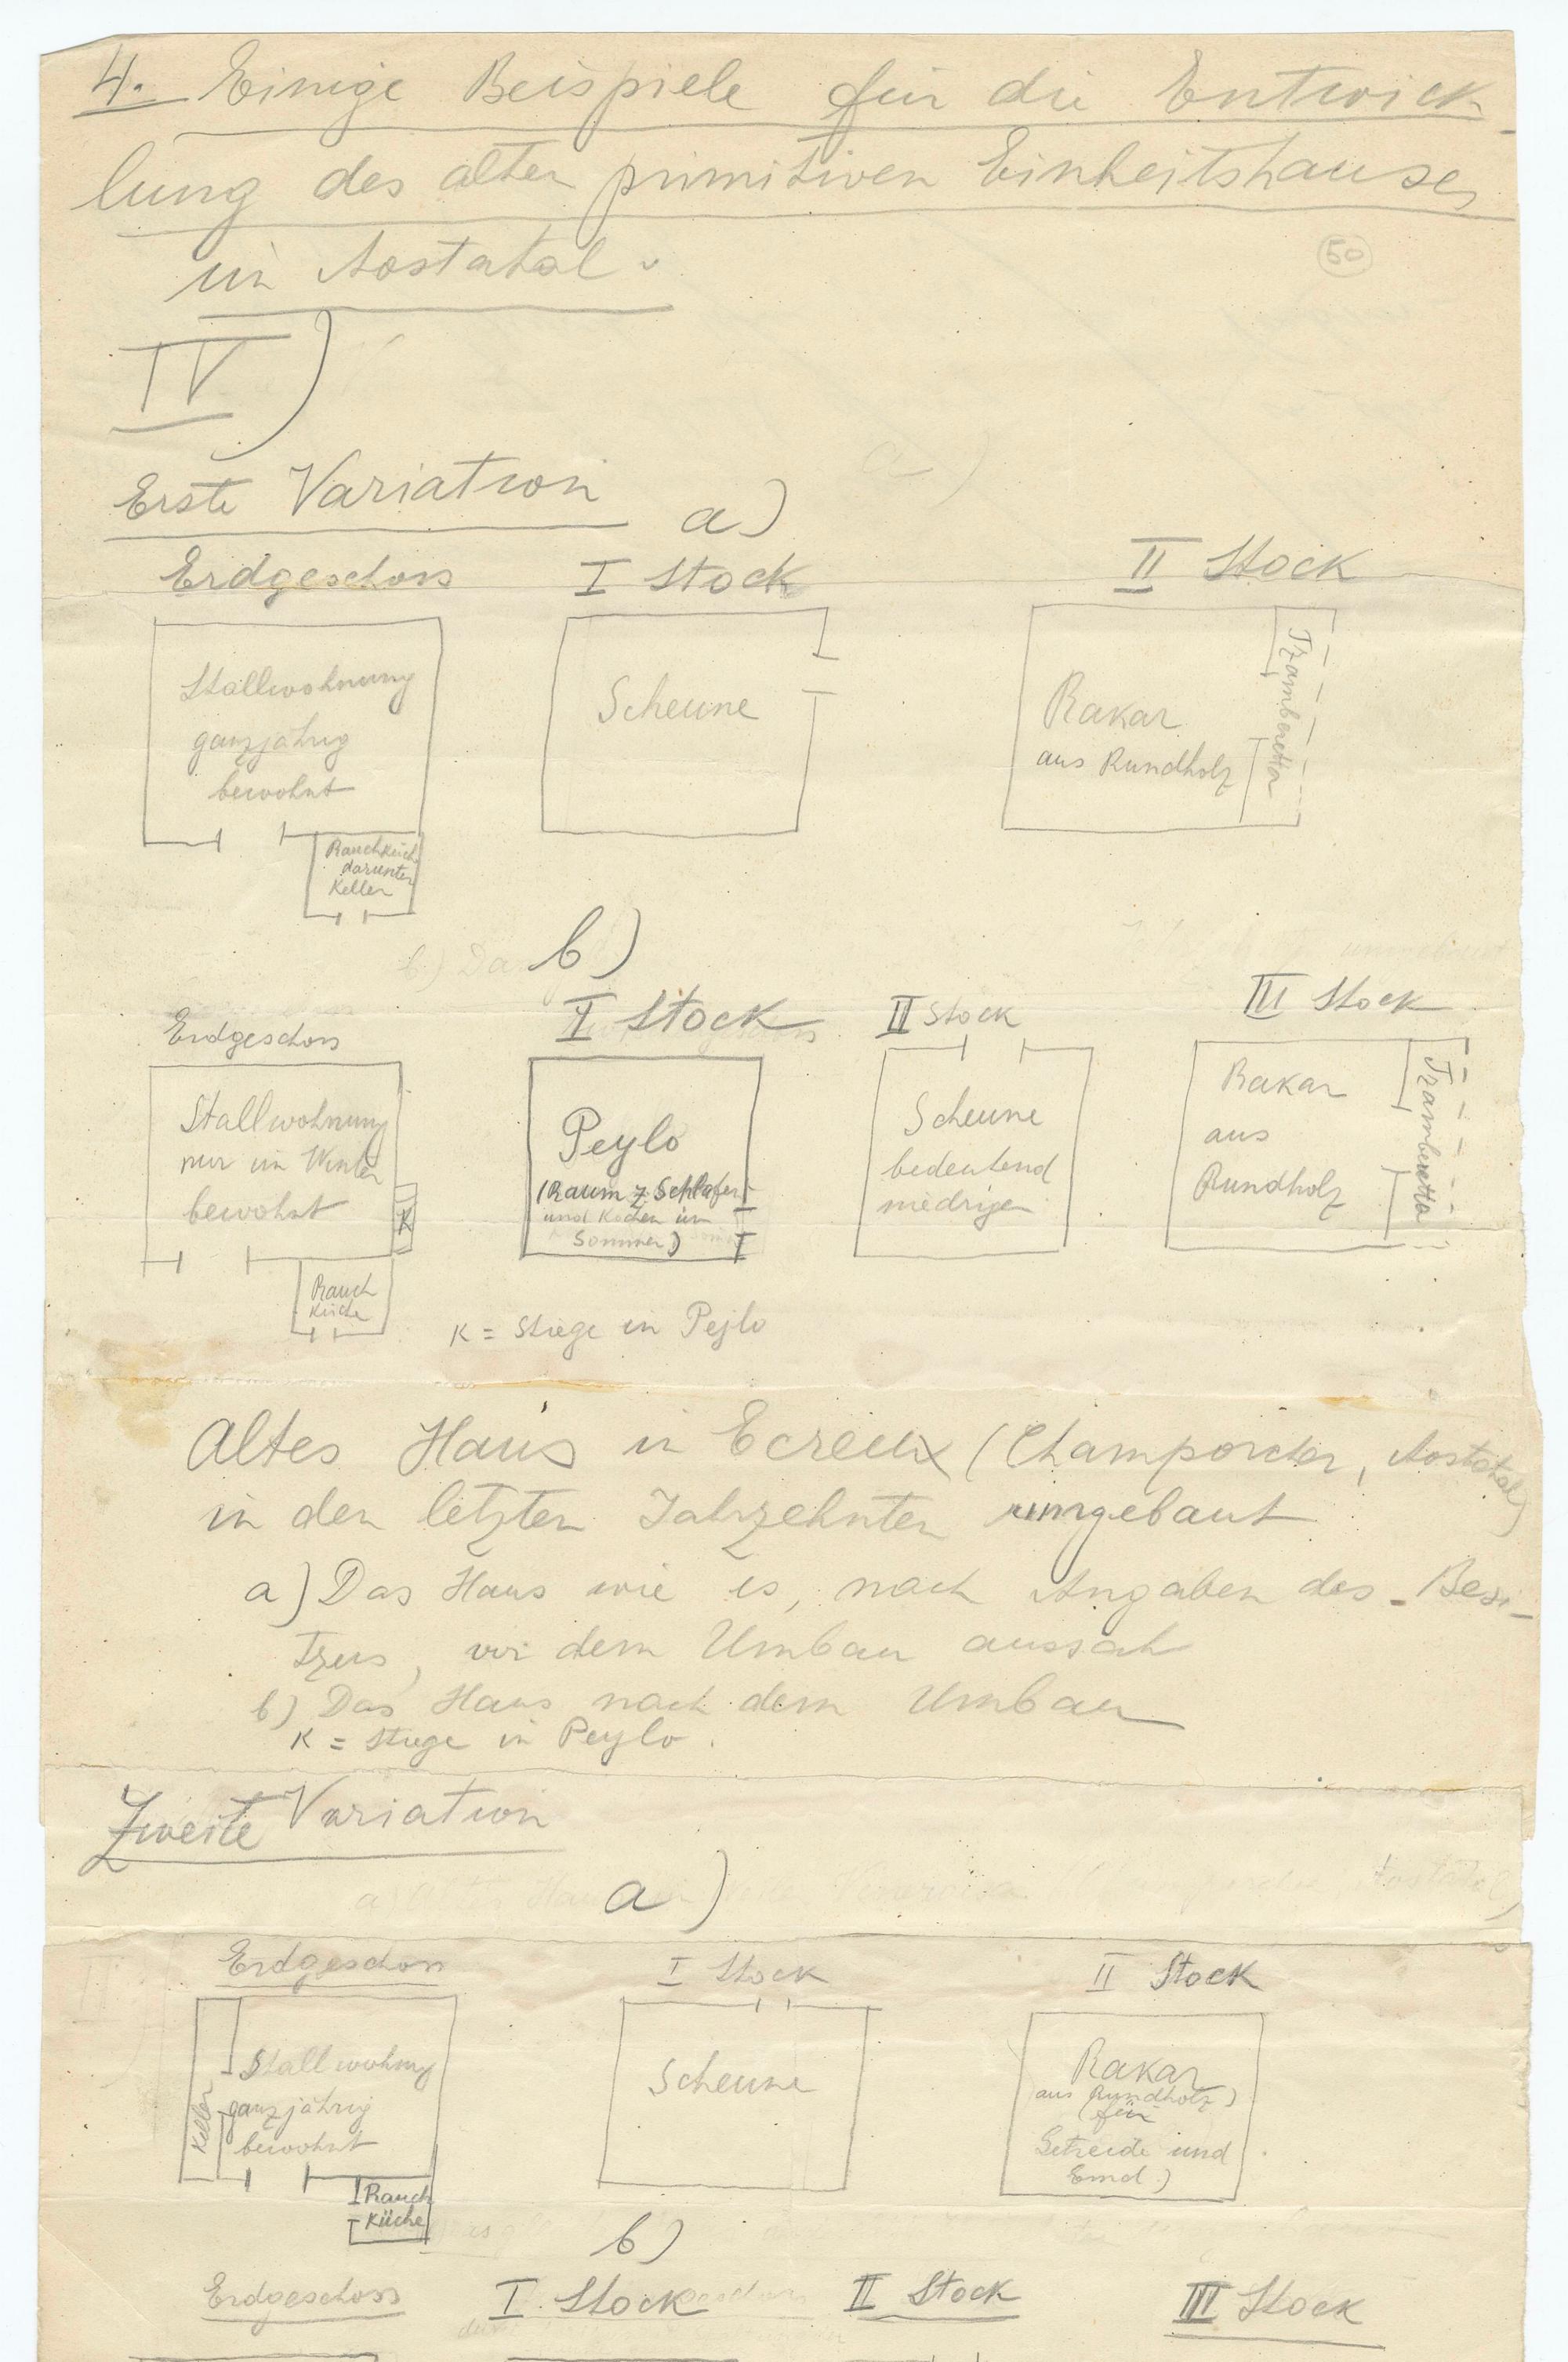 4. Einige Beispiele für die Entwick-
lung des alten primitiven Einheitshauses
im Aostatal.
50
IV)
Erste Variation
a)
Erdgeschoss
I Stock
II Stock
Stallwohnung
ganzjährig
bewohnt
Rauchküch
darunter
Keller
Scheune
Rakar
aus Rundholz
Tramberetta
b)
Erdgeschoss
I Stock
II Stock
III Stock
Stallwohnung
nur im Winter
bewohnt
K
Rauch
Küche
Peylo
(Raum z. Schlafen
und Kochen im
Sommer)
Scheune
bedeutend
niedriger
Rakar
aus
Rundholz
Tramberetta
K = Stiege in Pejlo
Altes Haus in Ecreux (Champorcher, Aostatal)
in den letzten Jahrzehnten umgebaut
a) Das Haus wie es, nach Angaben des Besi-
tzers, vor dem Umbau aussah
b) Das Haus nach dem Umbau
K = Stiege in Peylo.
Zweite Variation
a)
Erdgeschoss
I Stock
II Stock
Keller
Stallwohnung
ganzjährig
bewohnt
Rauch
Küche
Scheune
Rakar
aus Rundholz)
(für
Getreide und
Emd)
b)
Erdgeschoss
I Stock
II Stock
III Stock